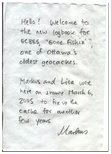 Hello! Welcome to
the new logbook for
GCBB6, "Gone Fishin'"
one of Ottawa's
oldest geocaches.
Markus and Lite were
here on snowy March 6,
2015 to fix up the
cache for another
few years.
Markus